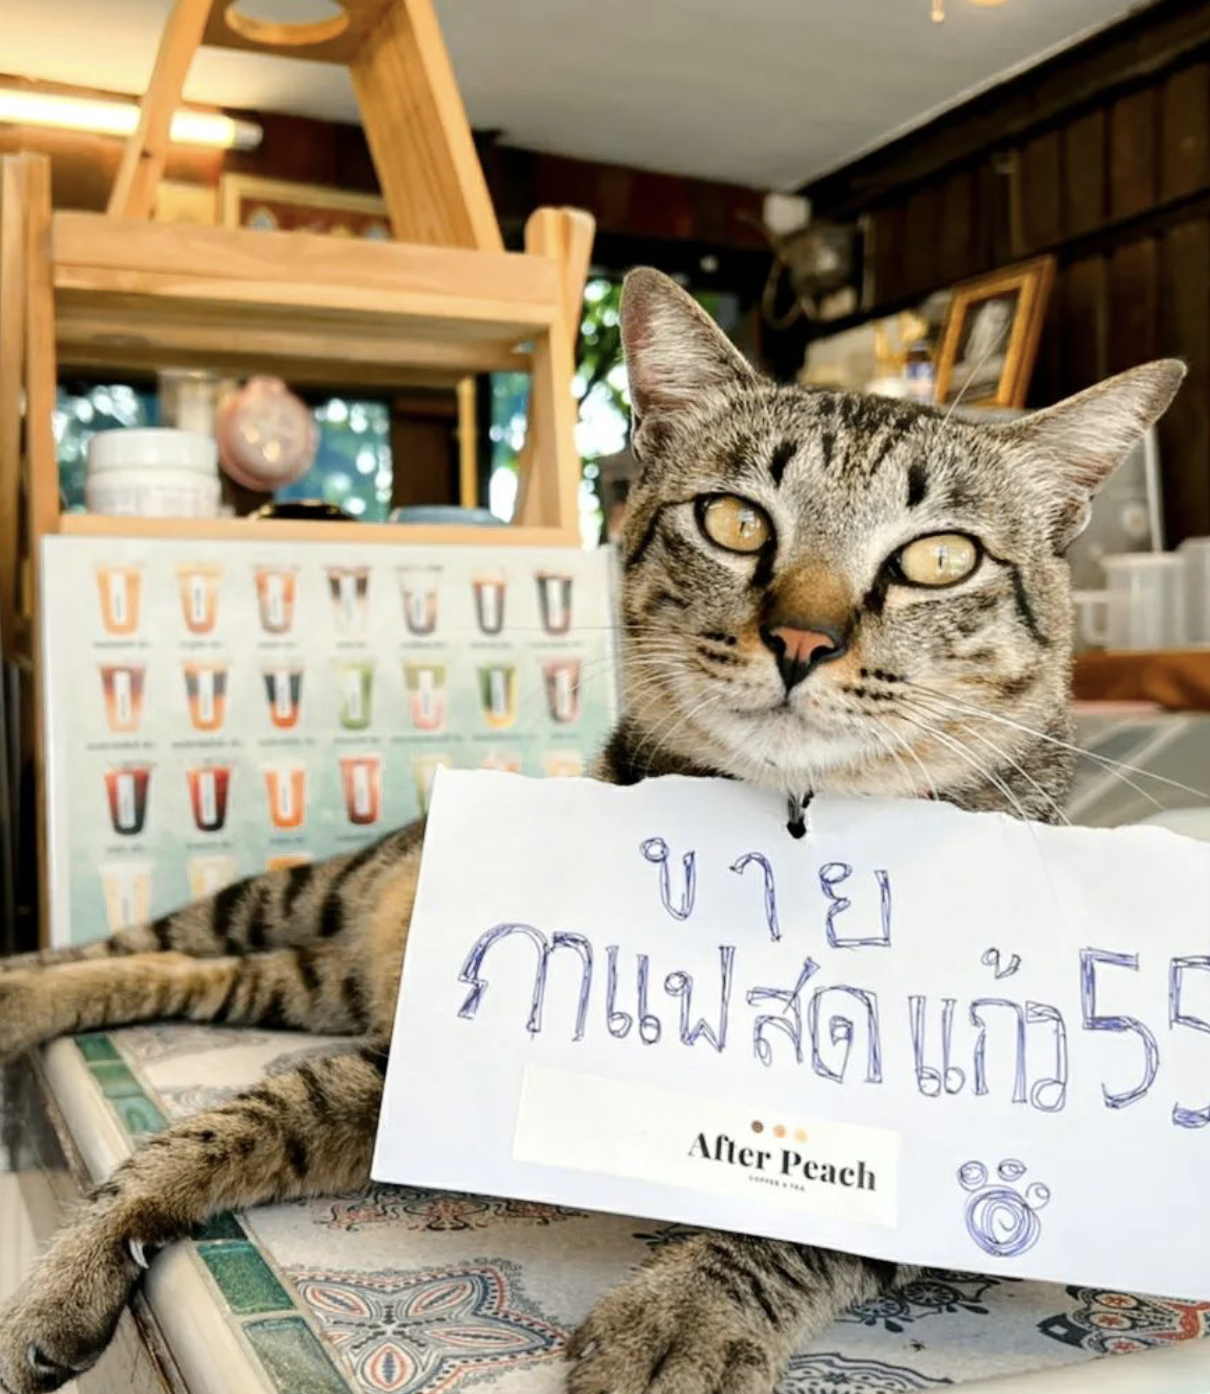 ขาย
กาแฟสด แก้ว 55
After Peach
COFFEE & TEA